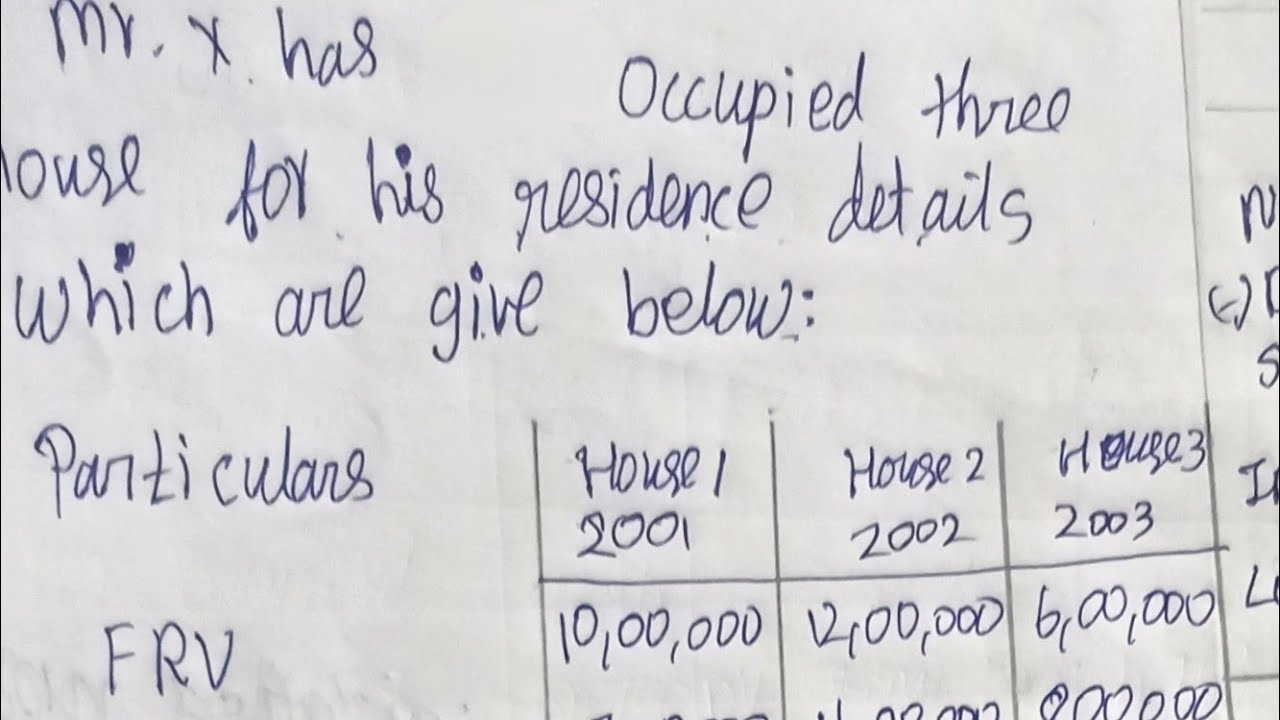 Mr. X has Occupied three
house for his residence details
which are give below:
Particulars House 1 House 2 House 3
2001 2002 2003
FRV 10,00,000 12,00,000 6,00,000